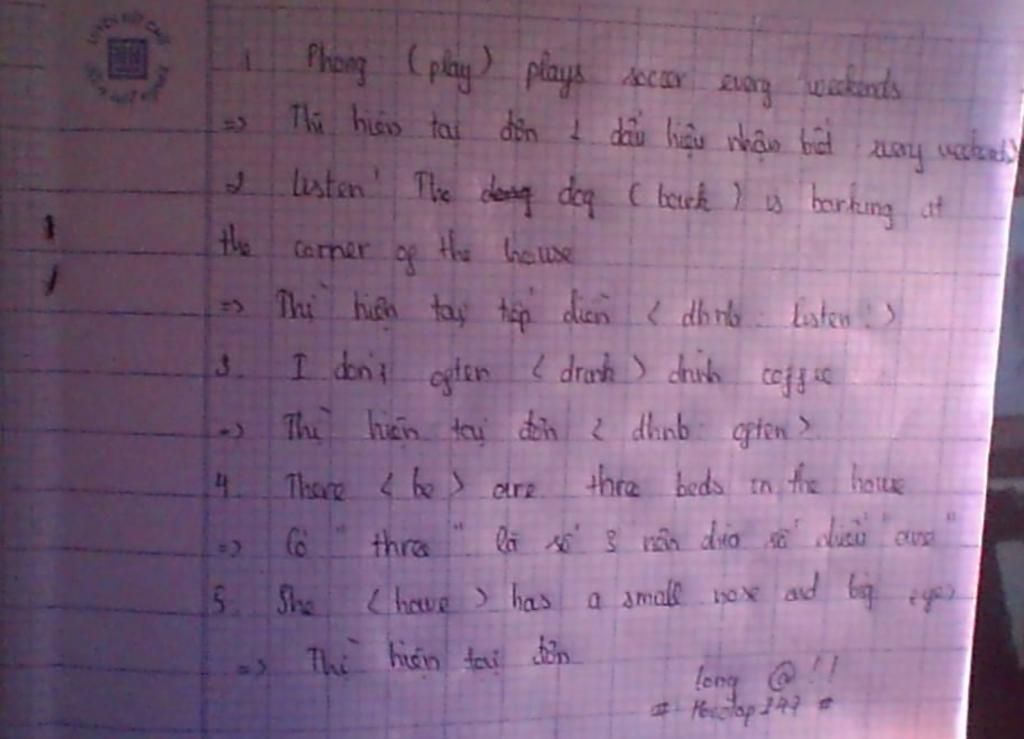 LUYỆN VIẾT CHỮ
1 Phong (play) plays soccer every weekends
=> Thì hiện tại đơn < dấu hiệu nhận biết every weekends>
2 Listen! The dog (bark) is barking at
the corner of the house
=> Thì hiện tại tiếp diễn < dhnb: Listen! >
3. I don't often < drank > drink coffee
=> Thì hiện tại đơn < dhnb: often >
4. There < be > are three beds in the house
=> Có " three " là số 3 nên chia số nhiều " are "
5. She < have > has a small nose and big eyes
=> Thì hiện tại đơn
long @ !!
# Hoctap247 #